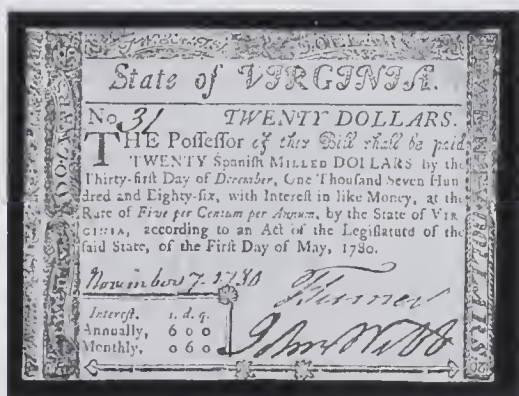 State of VIRGINIA.
No 31 TWENTY DOLLARS.
THE Poſſeſſor of this Bill ſhall be paid
TWENTY Spaniſh MILLED DOLLARS by the
Thirty-firſt Day of December, One Thouſand Seven Hun
dred and Eighty-ſix, with Intereſt in like Money, at the
Rate of Five per Centum per Annum, by the State of VIR
GINIA, according to an Act of the Legiſlature of the
ſaid State, of the Firſt Day of May, 1780.
November 7. 1780
Intereſt. s. d. q.
Annually, 6 0 0
Monthly, 0 6 0
Turner
John Webb
DOLLARS